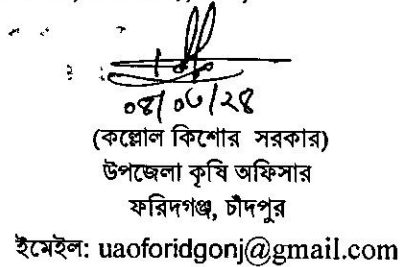 (কল্লোল কিশোর সরকার)
উপজেলা কৃষি অফিসার
ফরিদগঞ্জ, চাঁদপুর
ইমেইল: uaoforidgonj@gmail.com